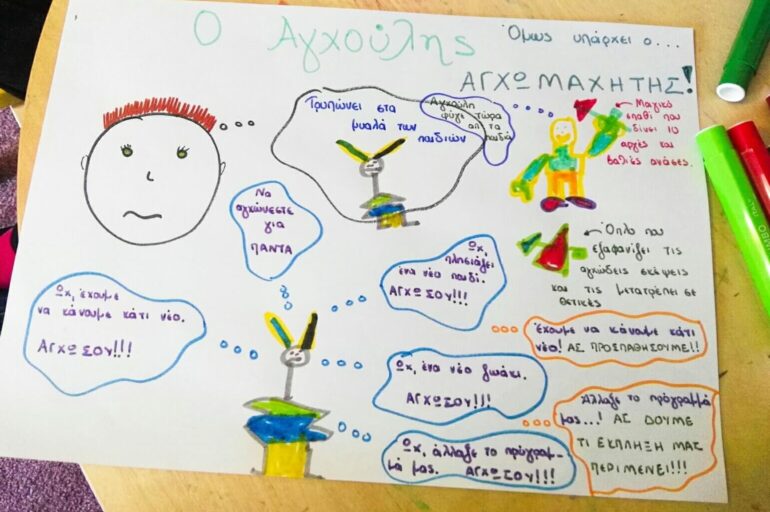 Ο Αγχούλης
Όμως υπάρχει ο...
ΑΓΧΩΜΑΧΗΤΗΣ!
Τρυπώνει στα
μυαλά των
παιδιών
Αγχούλη
φύγε τώρα
απ τα
παιδιά
Μαγικό
σπαθί που
δίνει 10
αργές και
βαθιές ανάσες.
Να
αγχώνεστε
για
ΠΑΝΤΑ
Όπλο που
εξαφανίζει τις
αγχώδεις σκέψεις
και τις μετατρέπει σε
θετικές
Ωχ,
πλησιάζει
ένα νέο παιδί.
ΑΓΧΩΣΟΥ!!!
Ωχ, έχουμε
να κάνουμε κάτι νέο.
ΑΓΧΩΣΟΥ!!!
Έχουμε να κάνουμε κάτι
νέο! ΑΣ ΠΡΟΣΠΑΘΗΣΟΥΜΕ!!
Ωχ, ένα νέο ζωάκι.
ΑΓΧΩΣΟΥ!!!
Άλλαξε το πρόγραμμά
μας...! ΑΣ ΔΟΥΜΕ
ΤΙ ΕΚΠΛΗΞΗ ΜΑΣ
ΠΕΡΙΜΕΝΕΙ!!!
Ωχ, άλλαξε το πρόγραμ-
μά μας. ΑΓΧΩΣΟΥ!!!